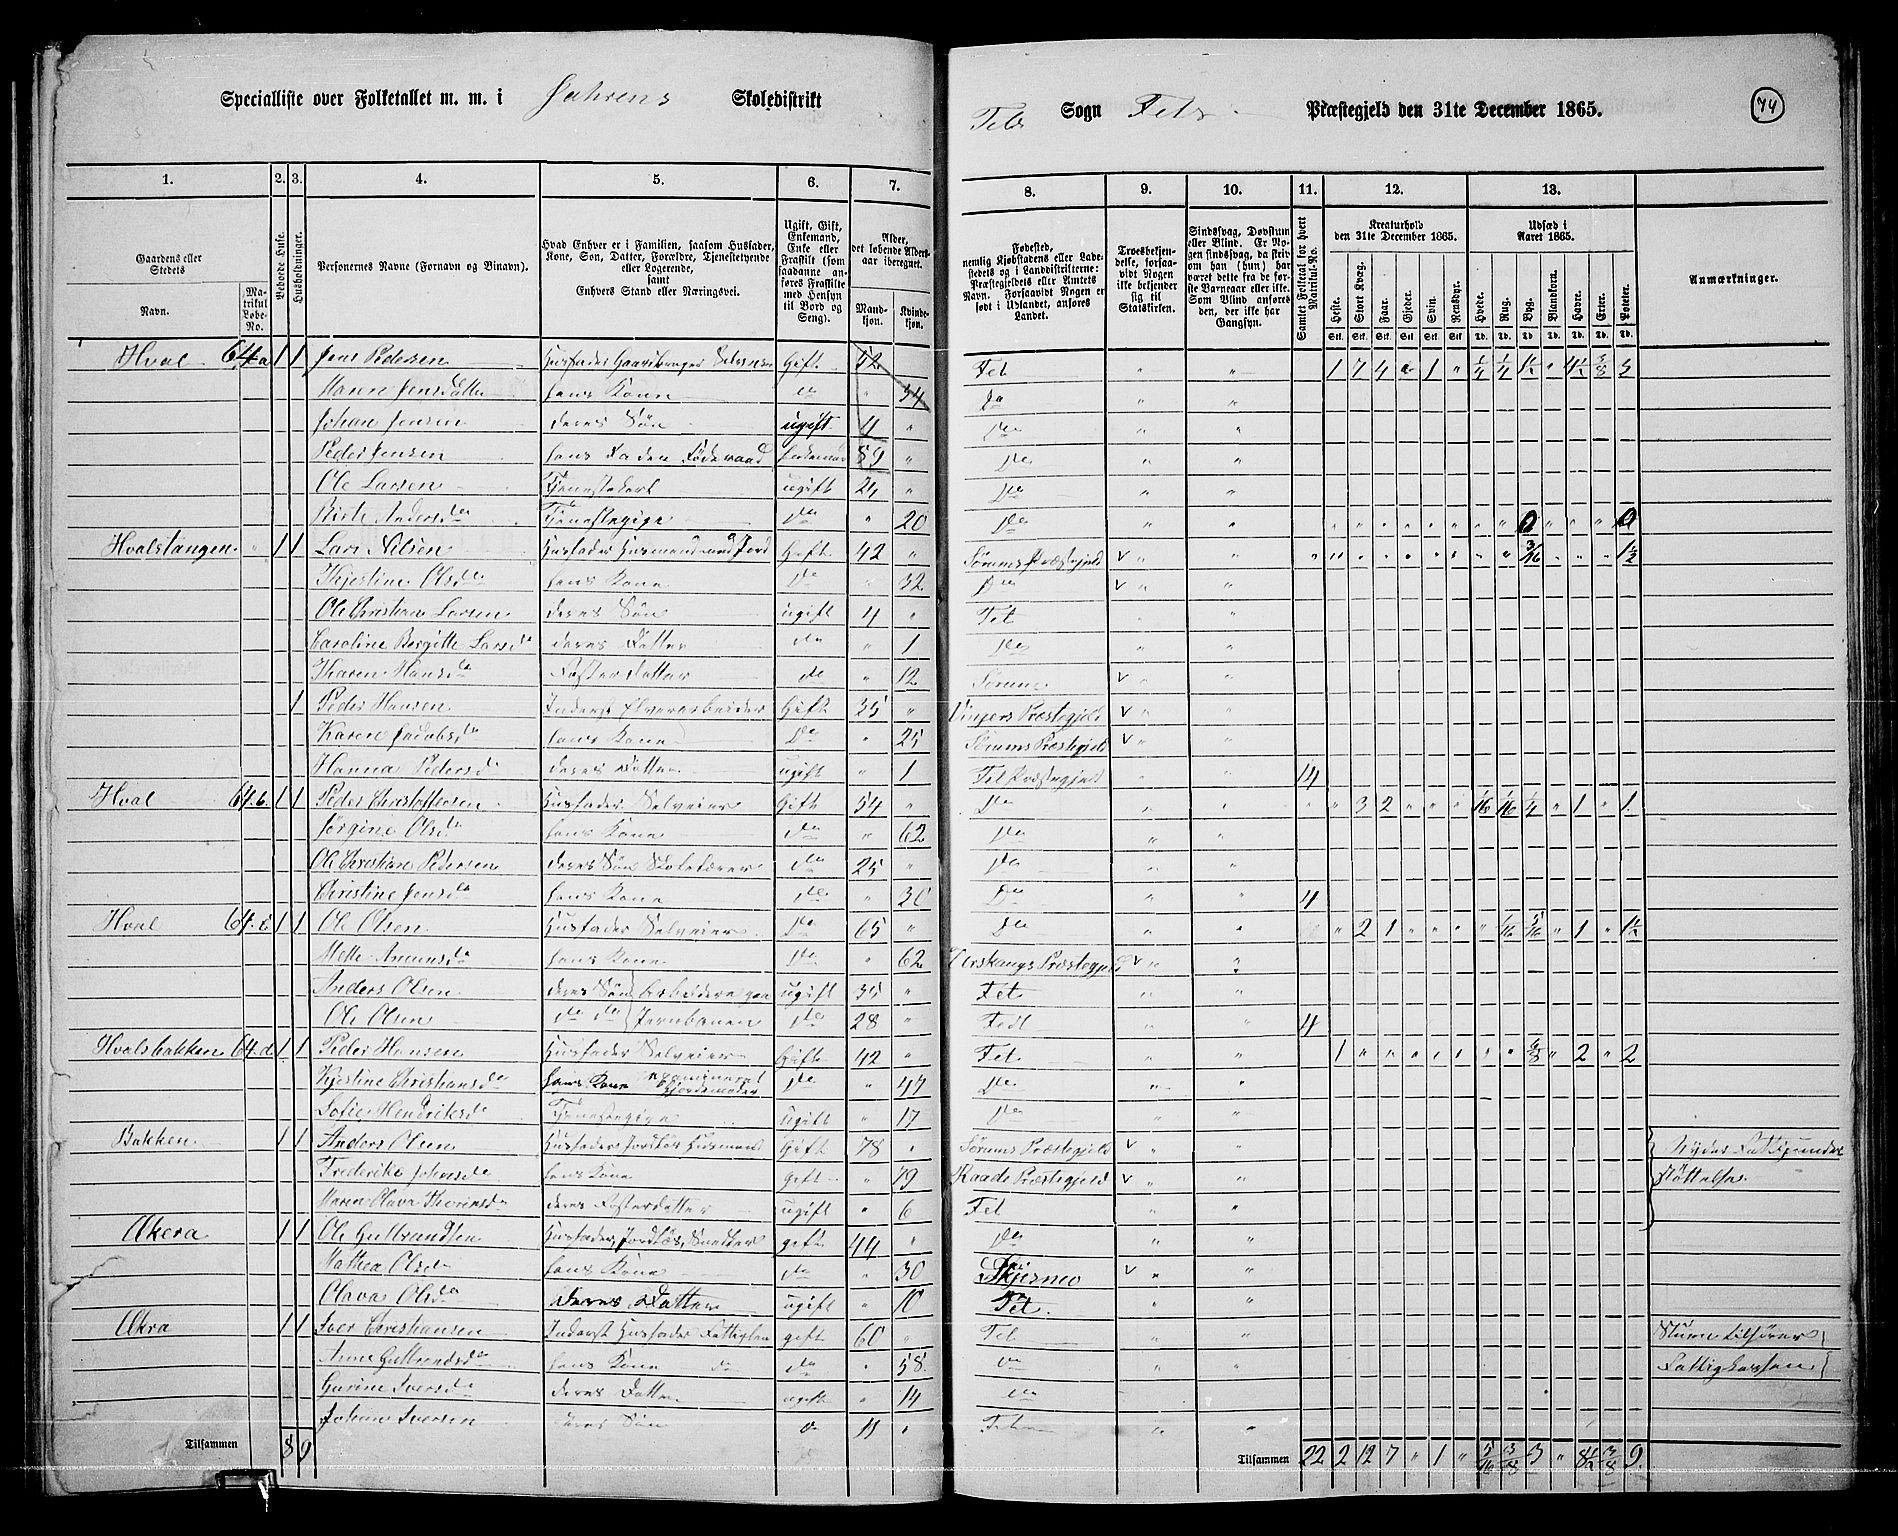 Specialliste over Folketallet m. m. i Jahrens Skoledistrikt
Fets Sogn Fets Præstegjeld den 31te December 1865.
74
1. 2. 3. 4. 5. 6. 7. 8. 9. 10. 11. 12. 13.
Gaardens eller Stedets
Navn.
Matrikul Løbe-No.
Beboede Huse.
Husholdninger.
Personernes Navne (Fornavn og Binavn).
Hvad Enhver er i Familien, saasom Husfader, Kone, Søn, Datter, Forældre, Tjenestetyende eller Logerende, samt Enhvers Stand eller Næringsvei.
Ugift, Gift, Enkemand, Enke eller Fraskilt (som saadanne anføres Fraskilte med Hensyn til Bord og Seng).
Alder, det løbende Aldersaar iberegnet.
Mandkjøn. Kvindekjøn.
Fødested, nemlig Kjøbstadens eller Ladestedets og i Landdistrikterne: Præstegjeldets eller Amtets Navn. Forsaavidt Nogen er født i Udlandet, anføres Landet.
Troesbekjendelse, forsaavidt Nogen ikke bekjender sig til Statskirken.
Sindssvag, Døvstum eller Blind. Er Nogen sindssvag, da skriv om han (hun) har været dette fra de første Barneaar eller ikke. Som Blind anføres den, der ikke har Gangsyn.
Samlet Folketal for hvert Matrikul-No.
Kreaturhold den 31te December 1865.
Heste. Stort Kvæg. Faar. Gjeder. Svin. Rensdyr.
Udsæd i Aaret 1865.
Hvede. Rug. Byg. Blandkorn. Havre. Erter. Poteter.
Anmærkninger.
Hval 64a 1 1 Jens Pedersen Husfader Gaardbruger Selveier Gift 52 " Fet " " 1 7 4 " 1 " 1/4 1/4 1 1/2 " 4 1/2 3/8 3
Maren Jensdatter hans Kone do " 34 do " "
Johan Jensen deres Søn ugift 11 " do " "
Peder Jensen hans Fader Føderaad Enkemand 89 " do " "
Ole Larsen Tjenestekarl ugift 24 " do " "
Birte Andersda Tjenestepige do " 20 do " " 0 0
Hvalstangen " 1 1 Lars Nilsen Husfader Husmand med Jord Gift 42 " Sørums Præstegjeld v " " 3/16 1 1/2
Kjestine Olsda hans Kone do " 32 do v " "
Ole Christian Larsen deres Søn ugift 4 " Fet "
Caroline Bergitte Larsda deres Datter do " 1 do " "
Karen Hansda Fosterdatter do " 12 Sørum v " "
1 Peder Hansen Inderst Elvearbeider Gift 35 " Vingers Præstegjeld v " "
Karen Jacobsda hans Kone do " 25 Sørums Præstegjeld v " "
Hanna Pedersd deres Datter ugift " 1 Fet Præstegjeld " " 14
Hval 64.b. 1 1 Peder Christoffersen Husfader Selveier Gift 54 " do " " " 3 2 " " " 1/16 1/16 1/4 " 1 " 1
Jørgine Olsda hans Kone do " 62 do " "
Ole Christian Pedersen deres Søn Skolelærer do 25 " do " "
Christine Jensda hans Kone do " 30 do " " 4
Hval 64.c 1 1 Ole Olsen Husfader Selveier do 65 " do " " " 2 1 " " " " 1/16 5/16 " 1 " 1 1/2
Mette Amunsda hans Kone do " 62 Urskougs Præstegjeld v " "
Anders Olsen deres Søn Arbeidere paa ugift 35 " Fet " "
Ole Olsen do do Jernbanen do 28 " Fedt " " 4
Hvalsbakken 64.d. 1 1 Peder Hansen Husfader Selveier Gift 42 " Fet " " 1 " " " " " " " 6/8 " 2 " 2
Kjestine Christiansda hans Kone examineret Gjordemoder do " 47 do " "
Sofie Hendriksda Tjenestepige ugift " 17 do " "
Bakken 1 1 Anders Olsen Husfader Jordløs Husmand Gift 78 " Sørums Præstegjeld v " " Nyder Fattigunder
Frederike Johnsda hans Kone gift " 79 Raade Præstegjeld v " " støttelse
Maren Olava Thorinsda deres Fosterdatter ugift " 6 Fet " "
Akera 1 1 Ole Gulbrandsen Husfader, Jordløs, Snedker gift 44 " do " "
Mathea Olsda hans Kone do " 30 v " "
Olava Olsda deres Datter ugift " 10 Fet. " "
Akra 1 1 Iver Christiansen Inderst Husfader Fattiglem gift 60 " Fet " " Stuen tilhører
Anne Gulbrandsda hans Kone do do " 58 do " " Fattigkassen
Gurine Iversda deres Datter ugift " 14 do
Johan Iversen deres Søn do 11 " Fet " "
Tilsammen 8 9
Tilsammen 22 2 12 7 " 1 " 5/16 3/8 3 " 8 1/2 3/8 9